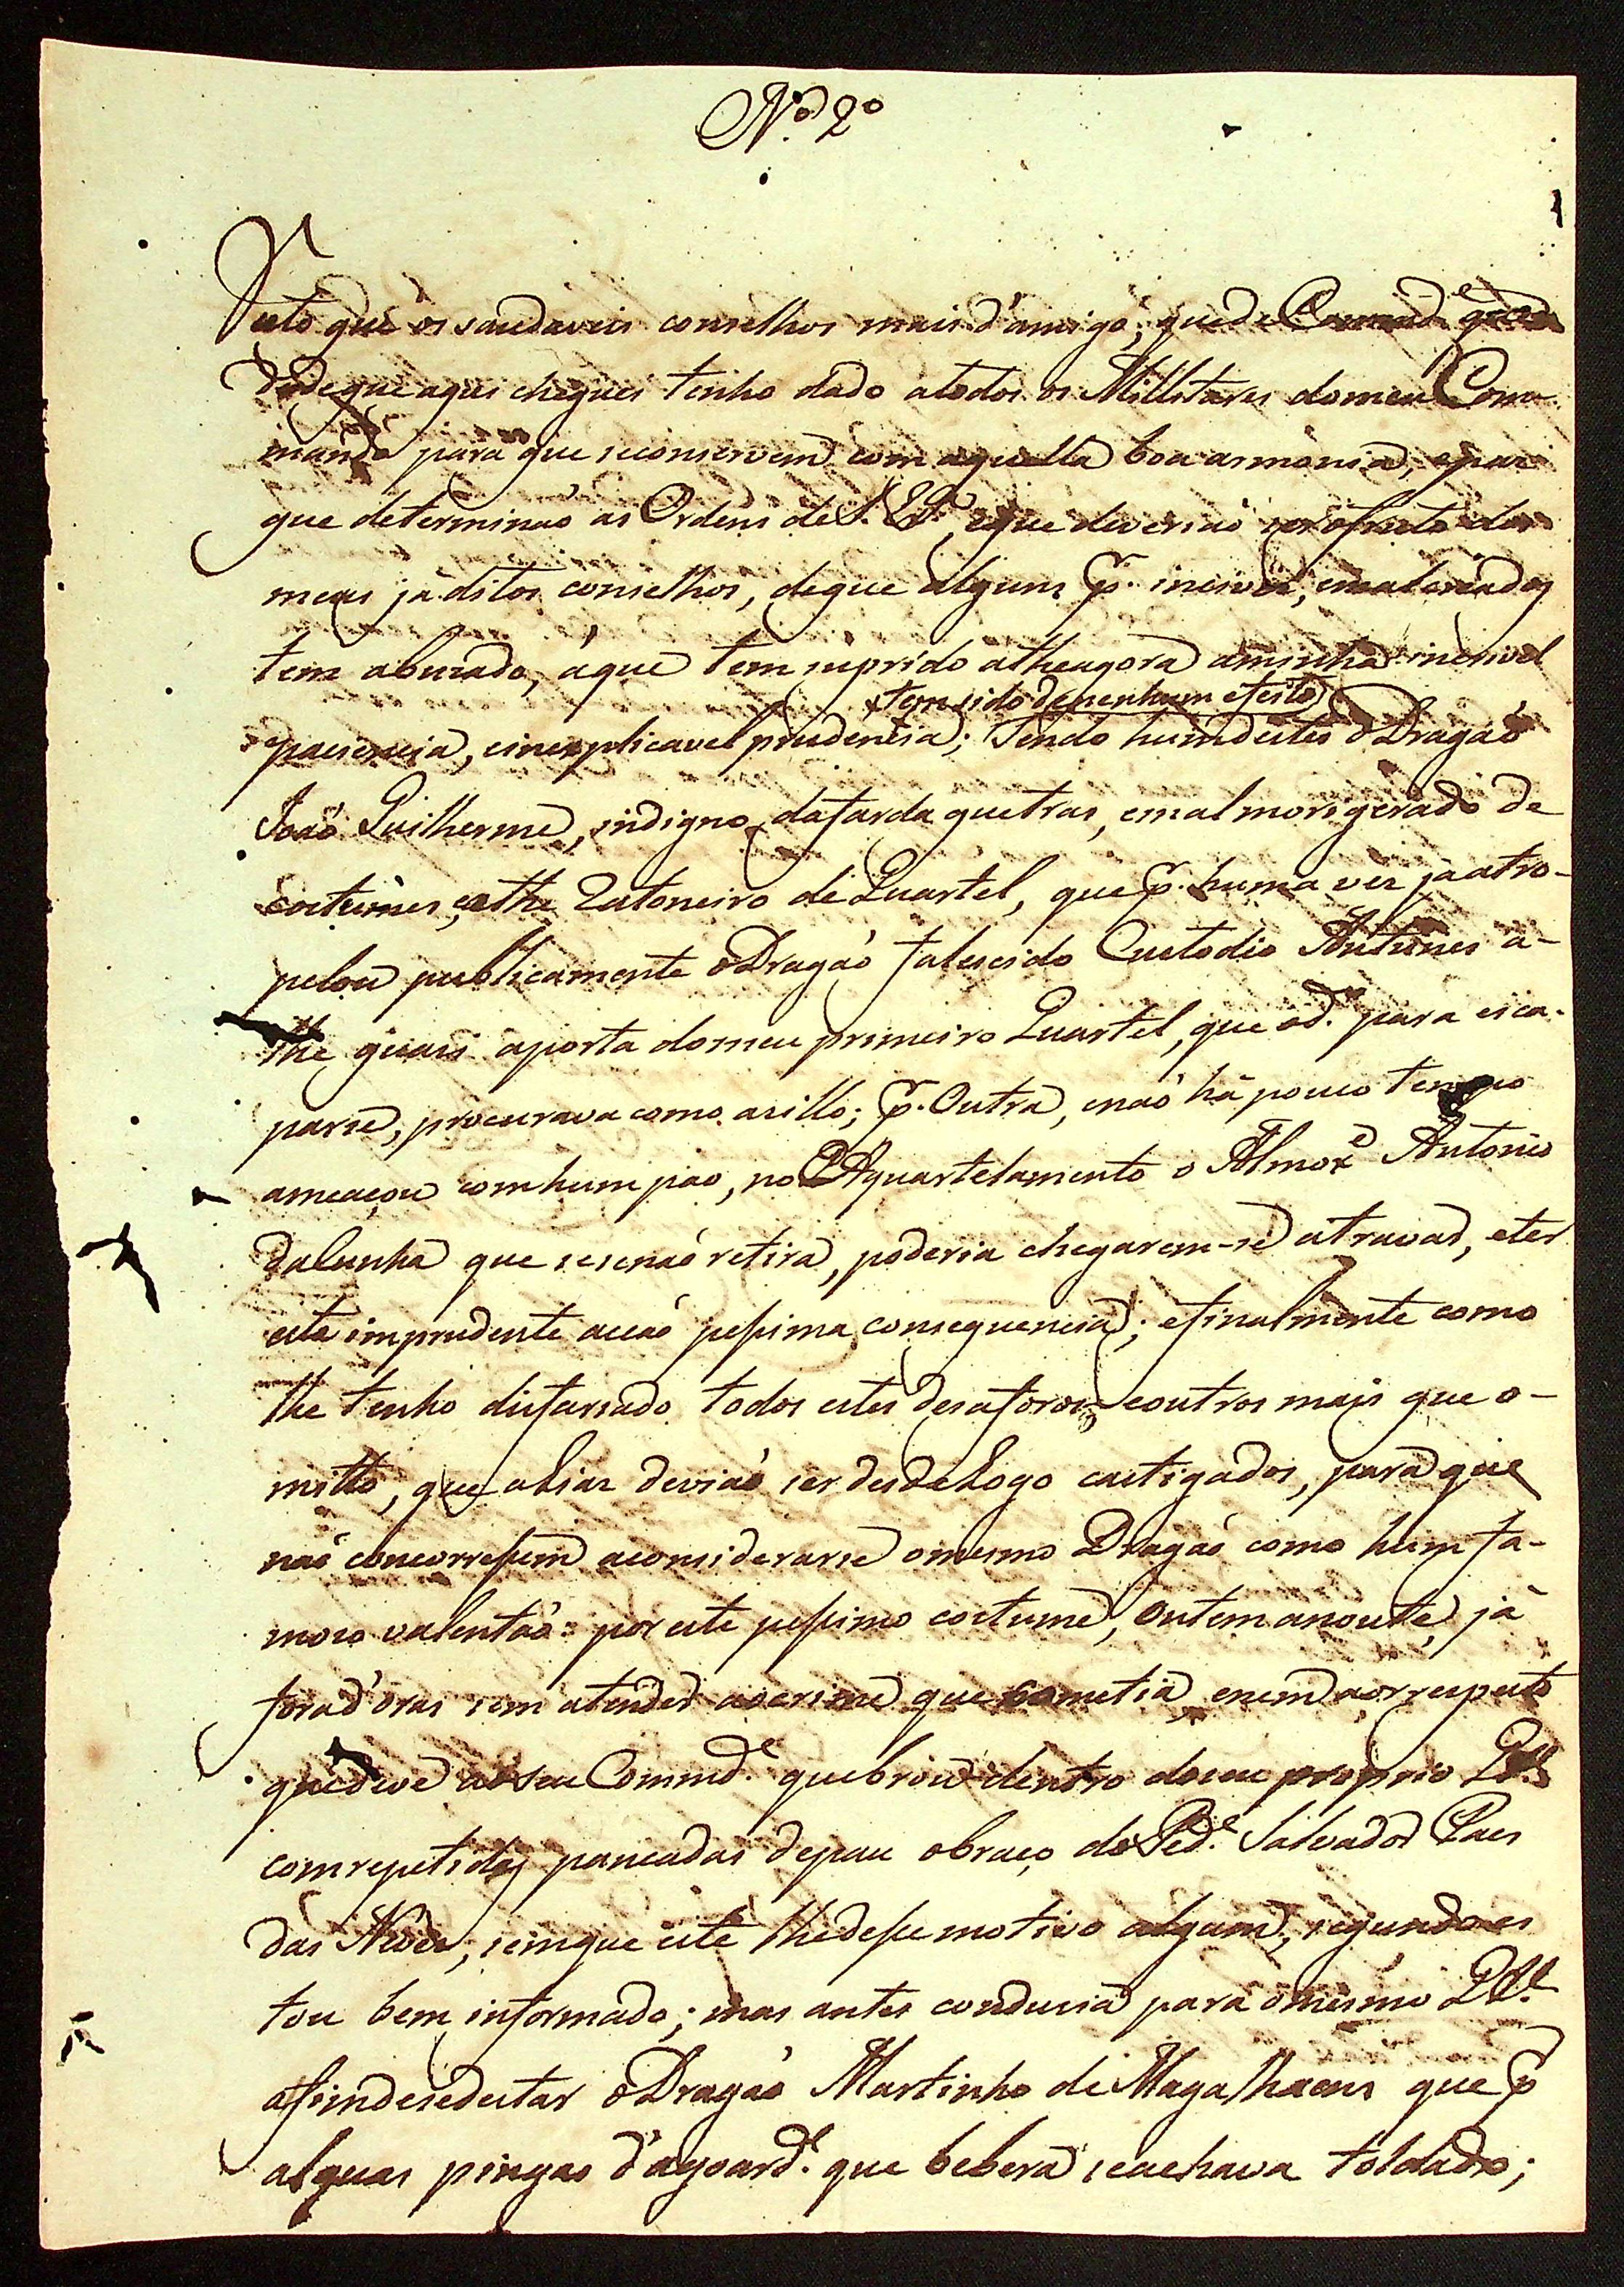 N.º 2º
Visto que os saudaveis conselhos mais d'amigo, que de Command.e
desde que aqui cheguei tenho dado atodos os Millitares domeu Com-
mando para que seconservem com aquella boa armonia, epaz
que determinaõ as Ordens de S. Ex.ª, eque deveriaõ ser ofruto dos
meus já ditos conselhos, deque alguns p.r inciviz, emalcriados
tem abuzado, áque tem suprido atheagora aminha incrivel
tem sido denenhum efeito
paciencia, einexplicavel prudencia; Sendo humdestes oDragaõ
Joaõ Guilherme, indigno dafarda quetras, emal morigerado de
costumes, eathe Ratoneiro de Quartel, que p.r huma vez jáatro-
pelou publicamente oDragaõ falescido Custodio Antunes a-
the quazi aporta domeu primeiro Quartel, que od.º para esca-
parse, procurava como azillo; p.r Outra, enaõ há pouco tempo
ameaçou comhum pao, no Aquartelamento o Almox.e Antonio
daCunha que sesenaõ retira, poderia chegarem-se atravar, eter
esta imprudente acçaõ pessima consequencia; efinalmente como
lhe tenho disfarsado todos estes desaforos, eoutros mais que o-
mitto, que aliaz deviaõ ser desdelogo castigados, para que
naõ concorressem aconsiderarse omesmo Dragaõ como hum fa-
mozo valentaõ: por este pessimo costume, Ontem anoute, já
forad'oras sem atender aocrime que cometia, enem aorrespeito
quedeve aoseu Commd.e quebrou dentro doseu proprio Q.el
comrepetidas pancadas depau obraço do Ped.e Salvador Paes
das Neves, semque este lhedesse motivo algum, segundoes
tou bem informado; mas antes conduzia para omesmo Q.el
afimdesedeitar oDragaõ Martinho de Magalhaens que p.r
alguas pingas d'agoard.e que bebera seachava toldado;